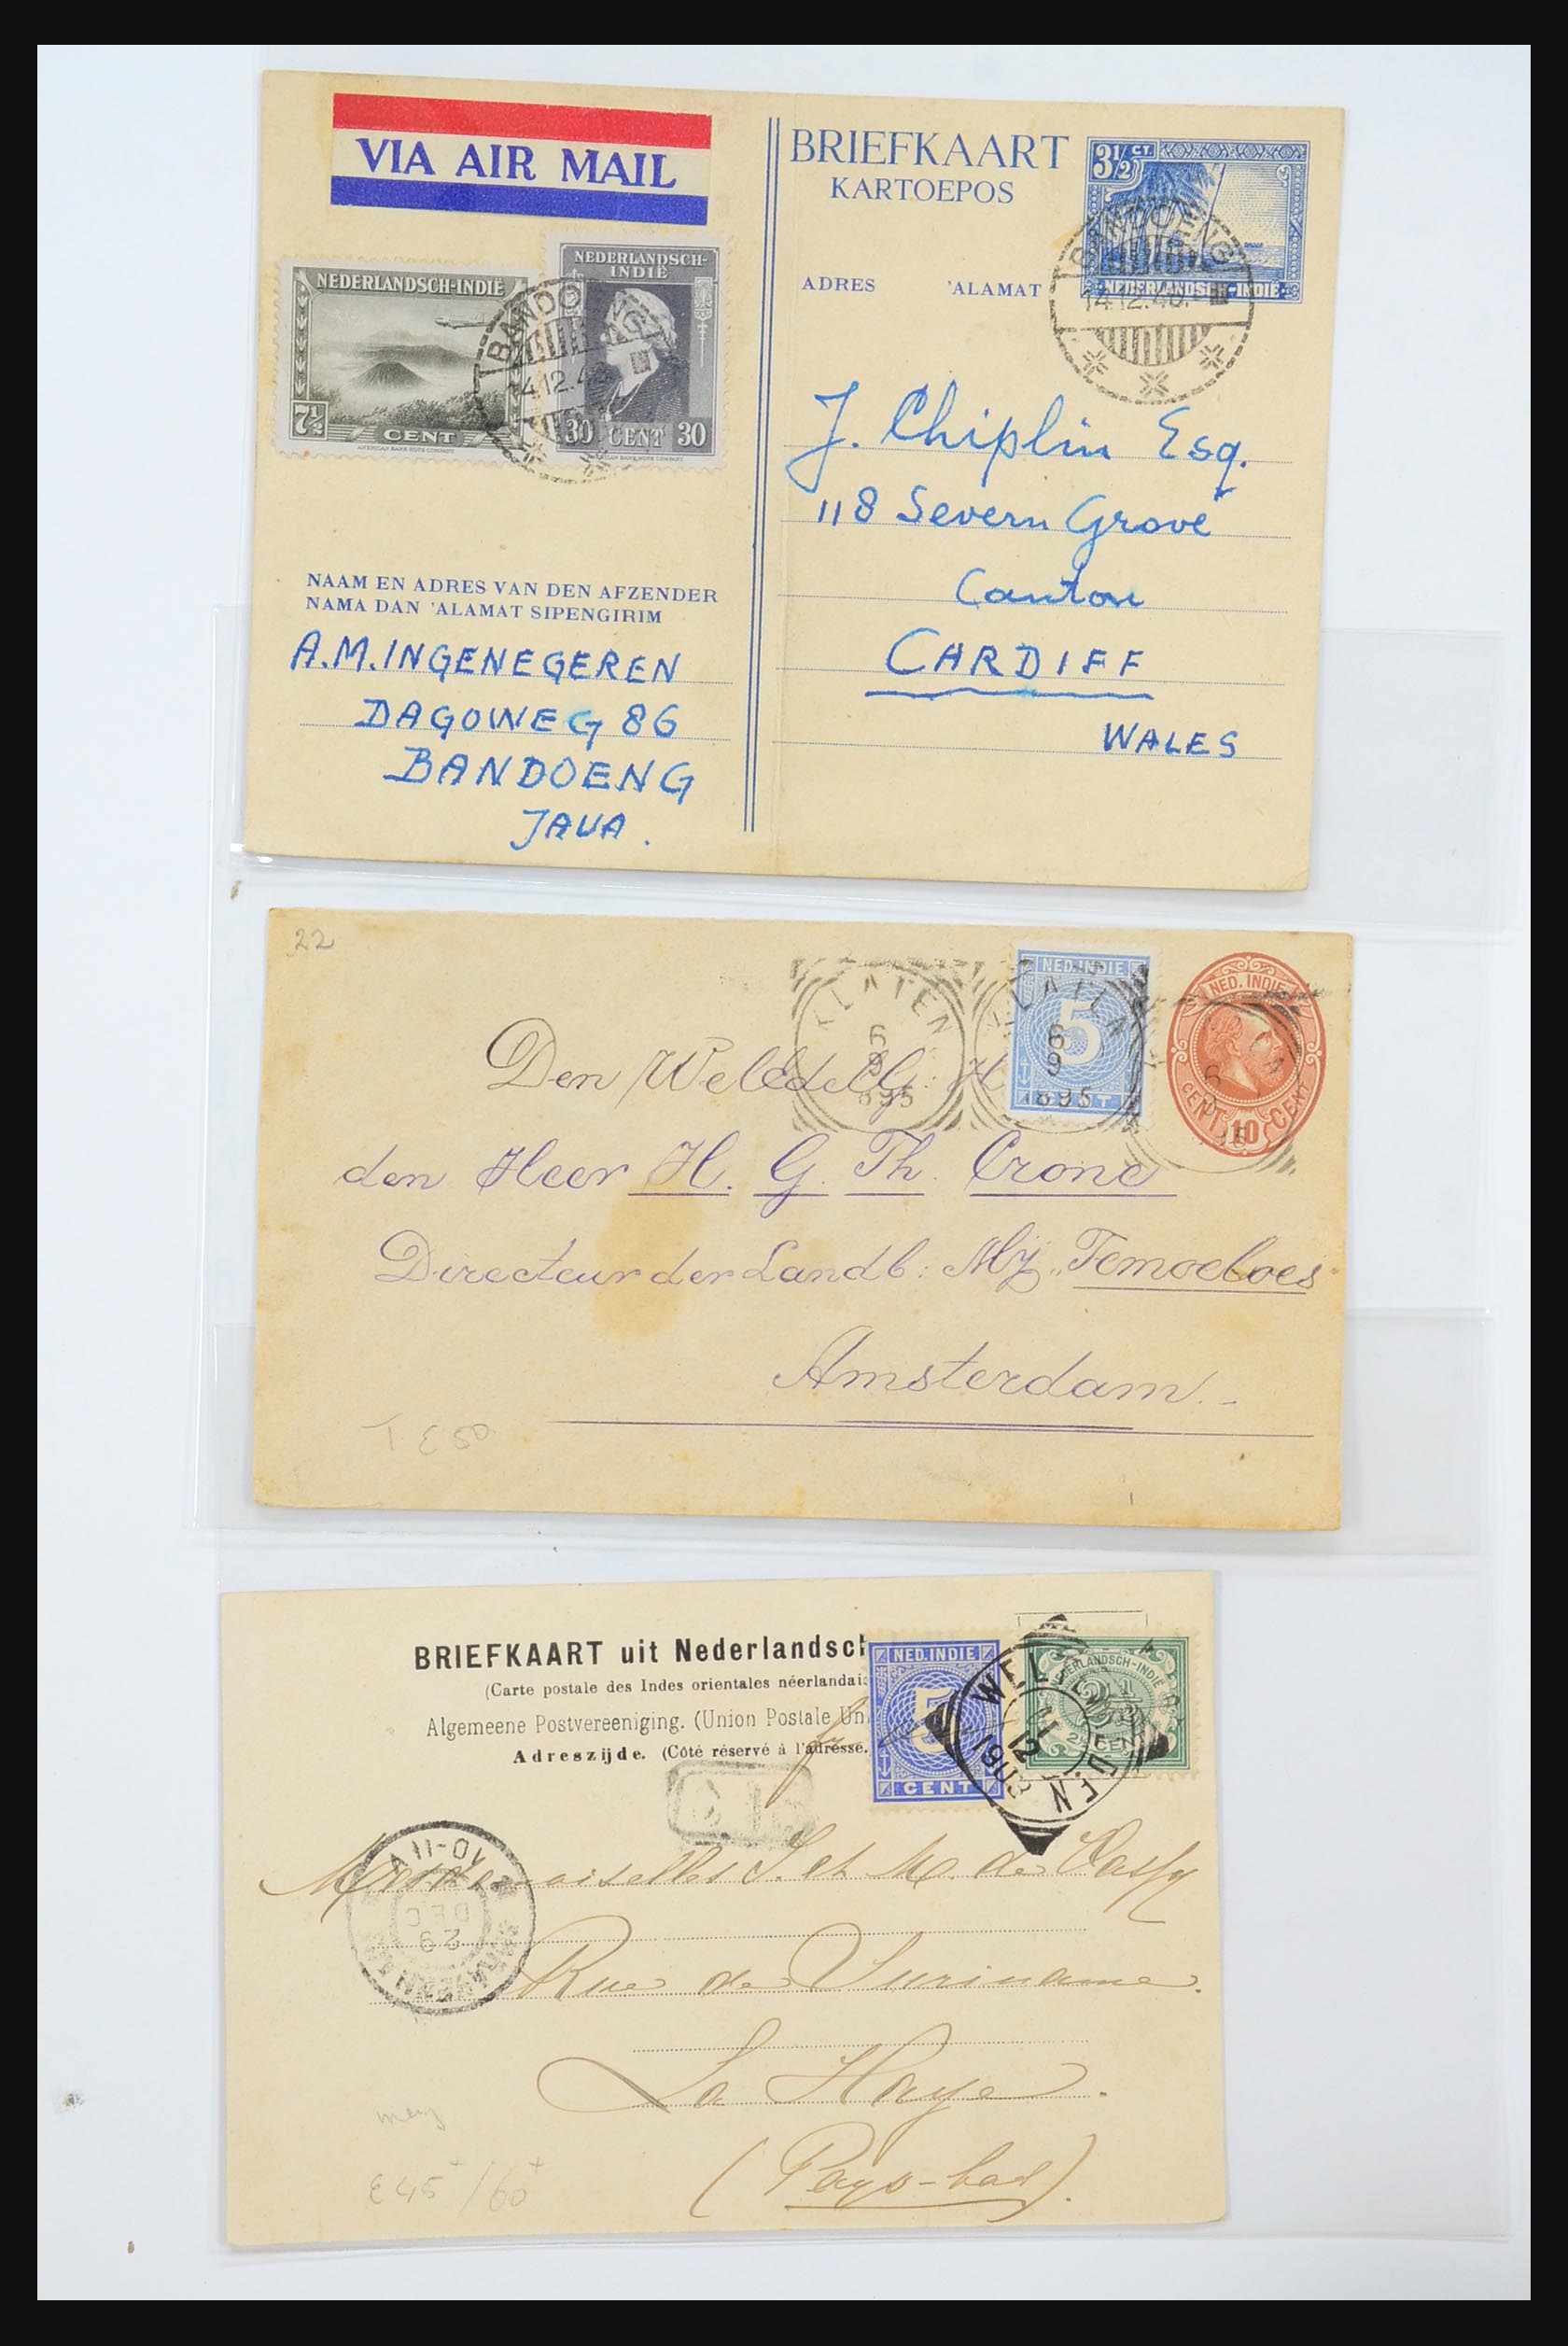 VIA AIR MAIL
BRIEFKAART
KARTOEPOS
3½ CT
NEDERLANDSCH-INDIË
ADRES 'ALAMAT
BANDOENG
14.12.46.
NEDERLANDSCH-INDIË
7½
CENT
AMERICAN BANK NOTE COMPANY
NEDERLANDSCH-
INDIË
30 CENT 30
AMERICAN BANK NOTE COMPANY
BANDOENG
J. Chiplin Esq.
118 Severn Grove
Canton
CARDIFF
WALES
NAAM EN ADRES VAN DEN AFZENDER
NAMA DAN 'ALAMAT SIPENGIRIM
A.M. INGENEGEREN
DAGOWEG 86
BANDOENG
JAVA.
22
KLATEN
6
9
895
NED-INDIE
5
CENT
KLATEN
6
9
895
NED. INDIE
CENT 10 CENT
Den WelEdelG: H
den Heer H. G. Th. Crone
Directeur der Landb: Mij. „Temoeloes
Amsterdam.-
T E 50
BRIEFKAART uit Nederlandsch
(Carte postale des Indes orientales néerlandais
Algemeene Postvereeniging. (Union Postale Un
Adreszijde. (Côté réservé à l'adresse.
NED.INDIE
5
CENT
NEDERLANDSCH-INDIE
2½
2½ CENT
WELTEVREDEN
11
12
1903
10-11
DEC
29
Mesdemoiselles S. et M. de
Rue de Suriname.
La Haye.
(Pays-bas).
E 45 / 60+